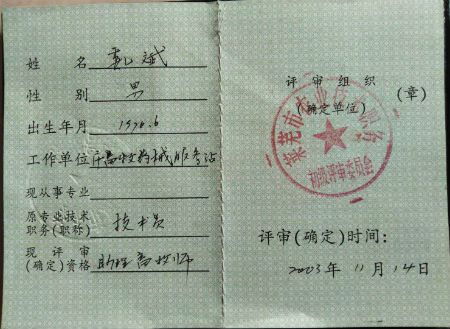 姓 名 亓斌
性 别 男
出生年月 1976.6
工作单位
现从事专业
原专业技术
职务(职称) 技术员
现 评 审
(确定)资格 助理畜牧师
评 审 组 织
(确定单位)
(章)
莱芜市
初级评审委员会
评审(确定)时间:
2003年 11月 14日